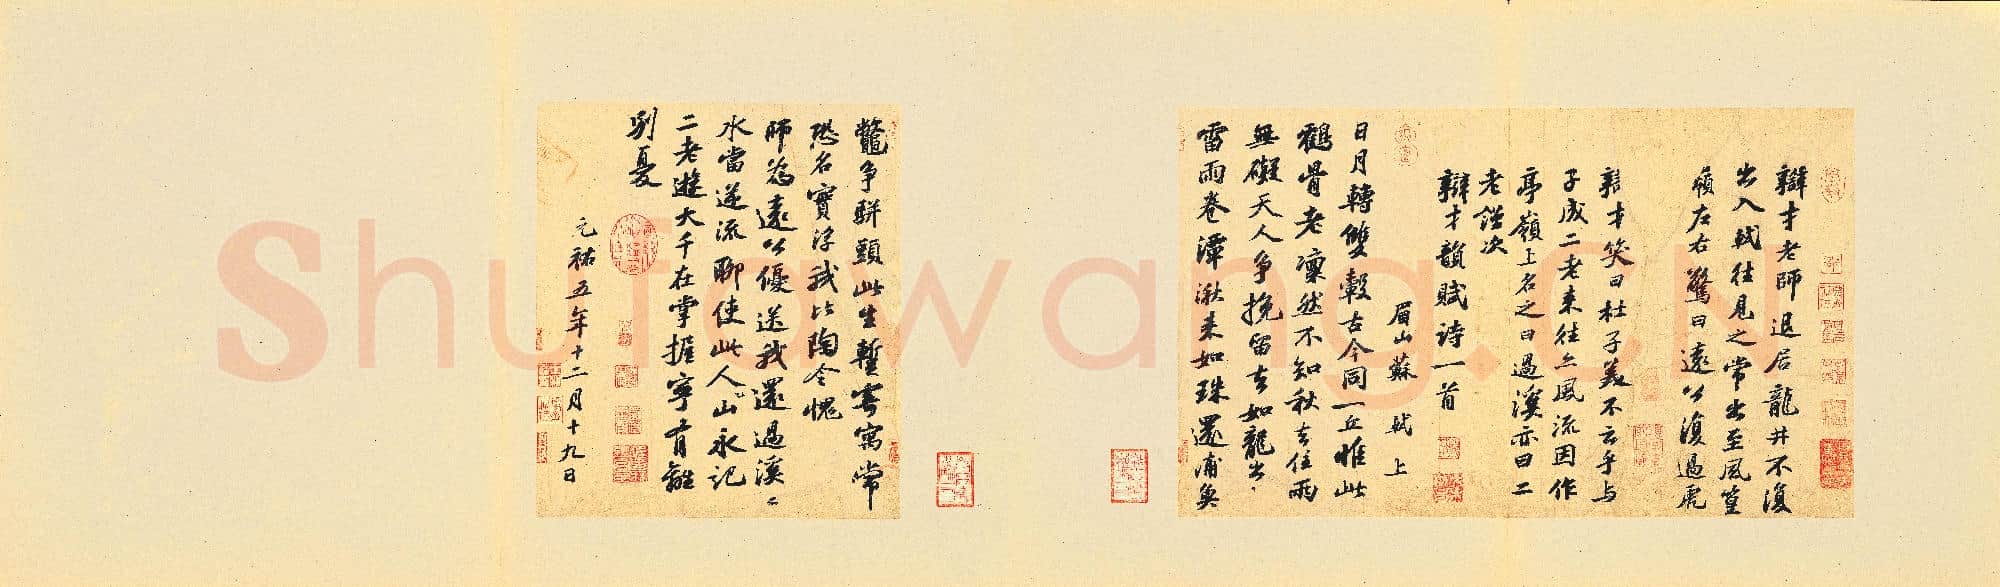 辯才老師退居龍井不復
出入軾往見之常出至風篁
嶺左右驚曰遠公復過虎
辯才笑曰杜子美不云乎与
子成二老来往亦風流因作
亭嶺上名之曰過溪亦曰二
老謹次
辯才韻賦詩一首
眉山蘇軾上
日月轉雙轂古今同一丘惟此
鶴骨老凜然不知秋去住兩
無礙天人爭挽留去如龍出
雷雨卷潭湫来如珠還浦魚
鼈爭駢頭此生暫寄寓常
恐名實浮我比陶令愧
師為遠公優送我還過溪〻
水當逆流聊使此人山永記
二老遊大千在掌握寧有離
別憂
元祐五年十二月十九日
Shufawang.CN